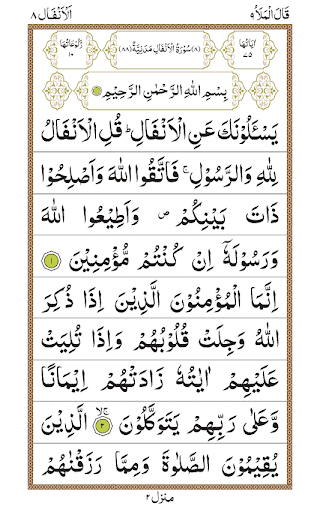 قَالَ الْمَلَاُ ٩
اَلْاَنْفَال ٨
اٰيَاتُهَا ٧٥
(٨) سُوْرَةُ الْاَنْفَالِ مَدَنِيَّةٌ (٨٨)
رُكُوْعَاتُهَا ١٠
بِسْمِ اللّٰهِ الرَّحْمٰنِ الرَّحِيْمِ
يَسْـَٔلُوْنَكَ عَنِ الْاَنْفَالِ ؕ قُلِ الْاَنْفَالُ
لِلّٰهِ وَالرَّسُوْلِ ۚ فَاتَّقُوا اللّٰهَ وَاَصْلِحُوْا
ذَاتَ بَيْنِكُمْ ۪ وَاَطِيْعُوا اللّٰهَ
وَرَسُوْلَهٗۤ اِنْ كُنْتُمْ مُّؤْمِنِيْنَ ١
اِنَّمَا الْمُؤْمِنُوْنَ الَّذِيْنَ اِذَا ذُكِرَ
اللّٰهُ وَجِلَتْ قُلُوْبُهُمْ وَاِذَا تُلِيَتْ
عَلَيْهِمْ اٰيٰتُهٗ زَادَتْهُمْ اِيْمَانًا
وَّعَلٰى رَبِّهِمْ يَتَوَكَّلُوْنَ ۚۖ ٢ الَّذِيْنَ
يُقِيْمُوْنَ الصَّلٰوةَ وَمِمَّا رَزَقْنٰهُمْ
منزل ٢